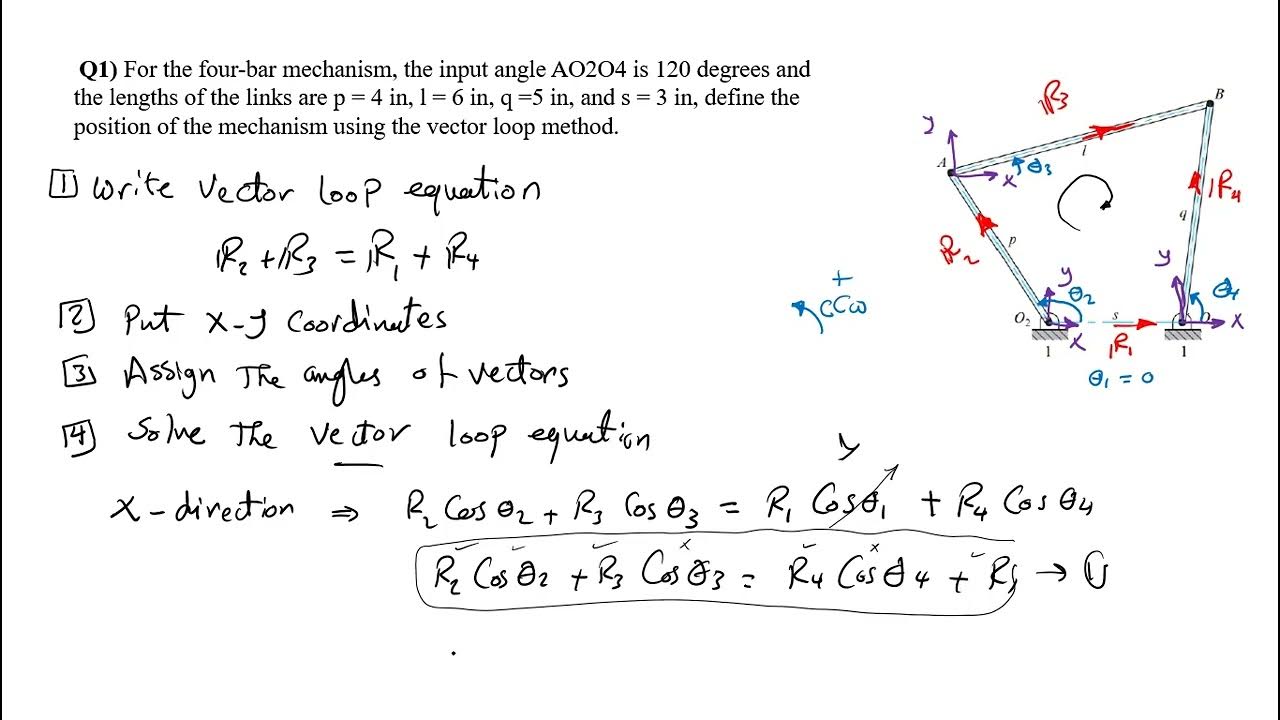 Q1) For the four-bar mechanism, the input angle AO2O4 is 120 degrees and
the lengths of the links are p = 4 in, l = 6 in, q =5 in, and s = 3 in, define the
position of the mechanism using the vector loop method.
1 Write Vector loop equation
R₂ + R₃ = R₁ + R₄
2 Put x-y Coordinates
3 Assign The angles of vectors
4 Solve The Vector loop equation
X - direction ⇒ R₂ Cos θ₂ + R₃ Cos θ₃ = R₁ Cos θ₁ + R₄ Cos θ₄
R₂ Cos θ₂ + R₃ Cos θ₃ = R₄ Cos θ₄ + R₁ → ①
R₃
B
y
A
l
θ₃
x
R₄
q
R₂
p
y
θ₂
y
θ₄
+
CCW
O₂
x
s
R₁
x
1
1
θ₁ = 0